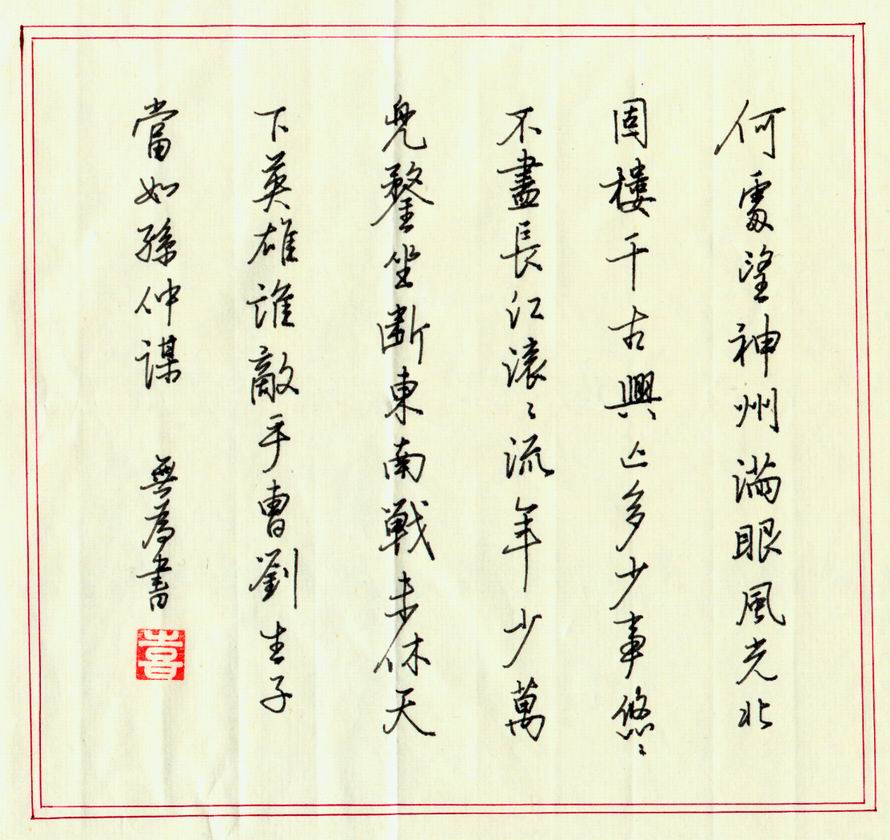 何處望神州滿眼風光北
固樓千古興亡多少事悠〻
不盡長江滚〻流年少萬
兜鍪坐斷東南戰未休天
下英雄誰敵手曹劉生子
當如孫仲謀 無為書
喜